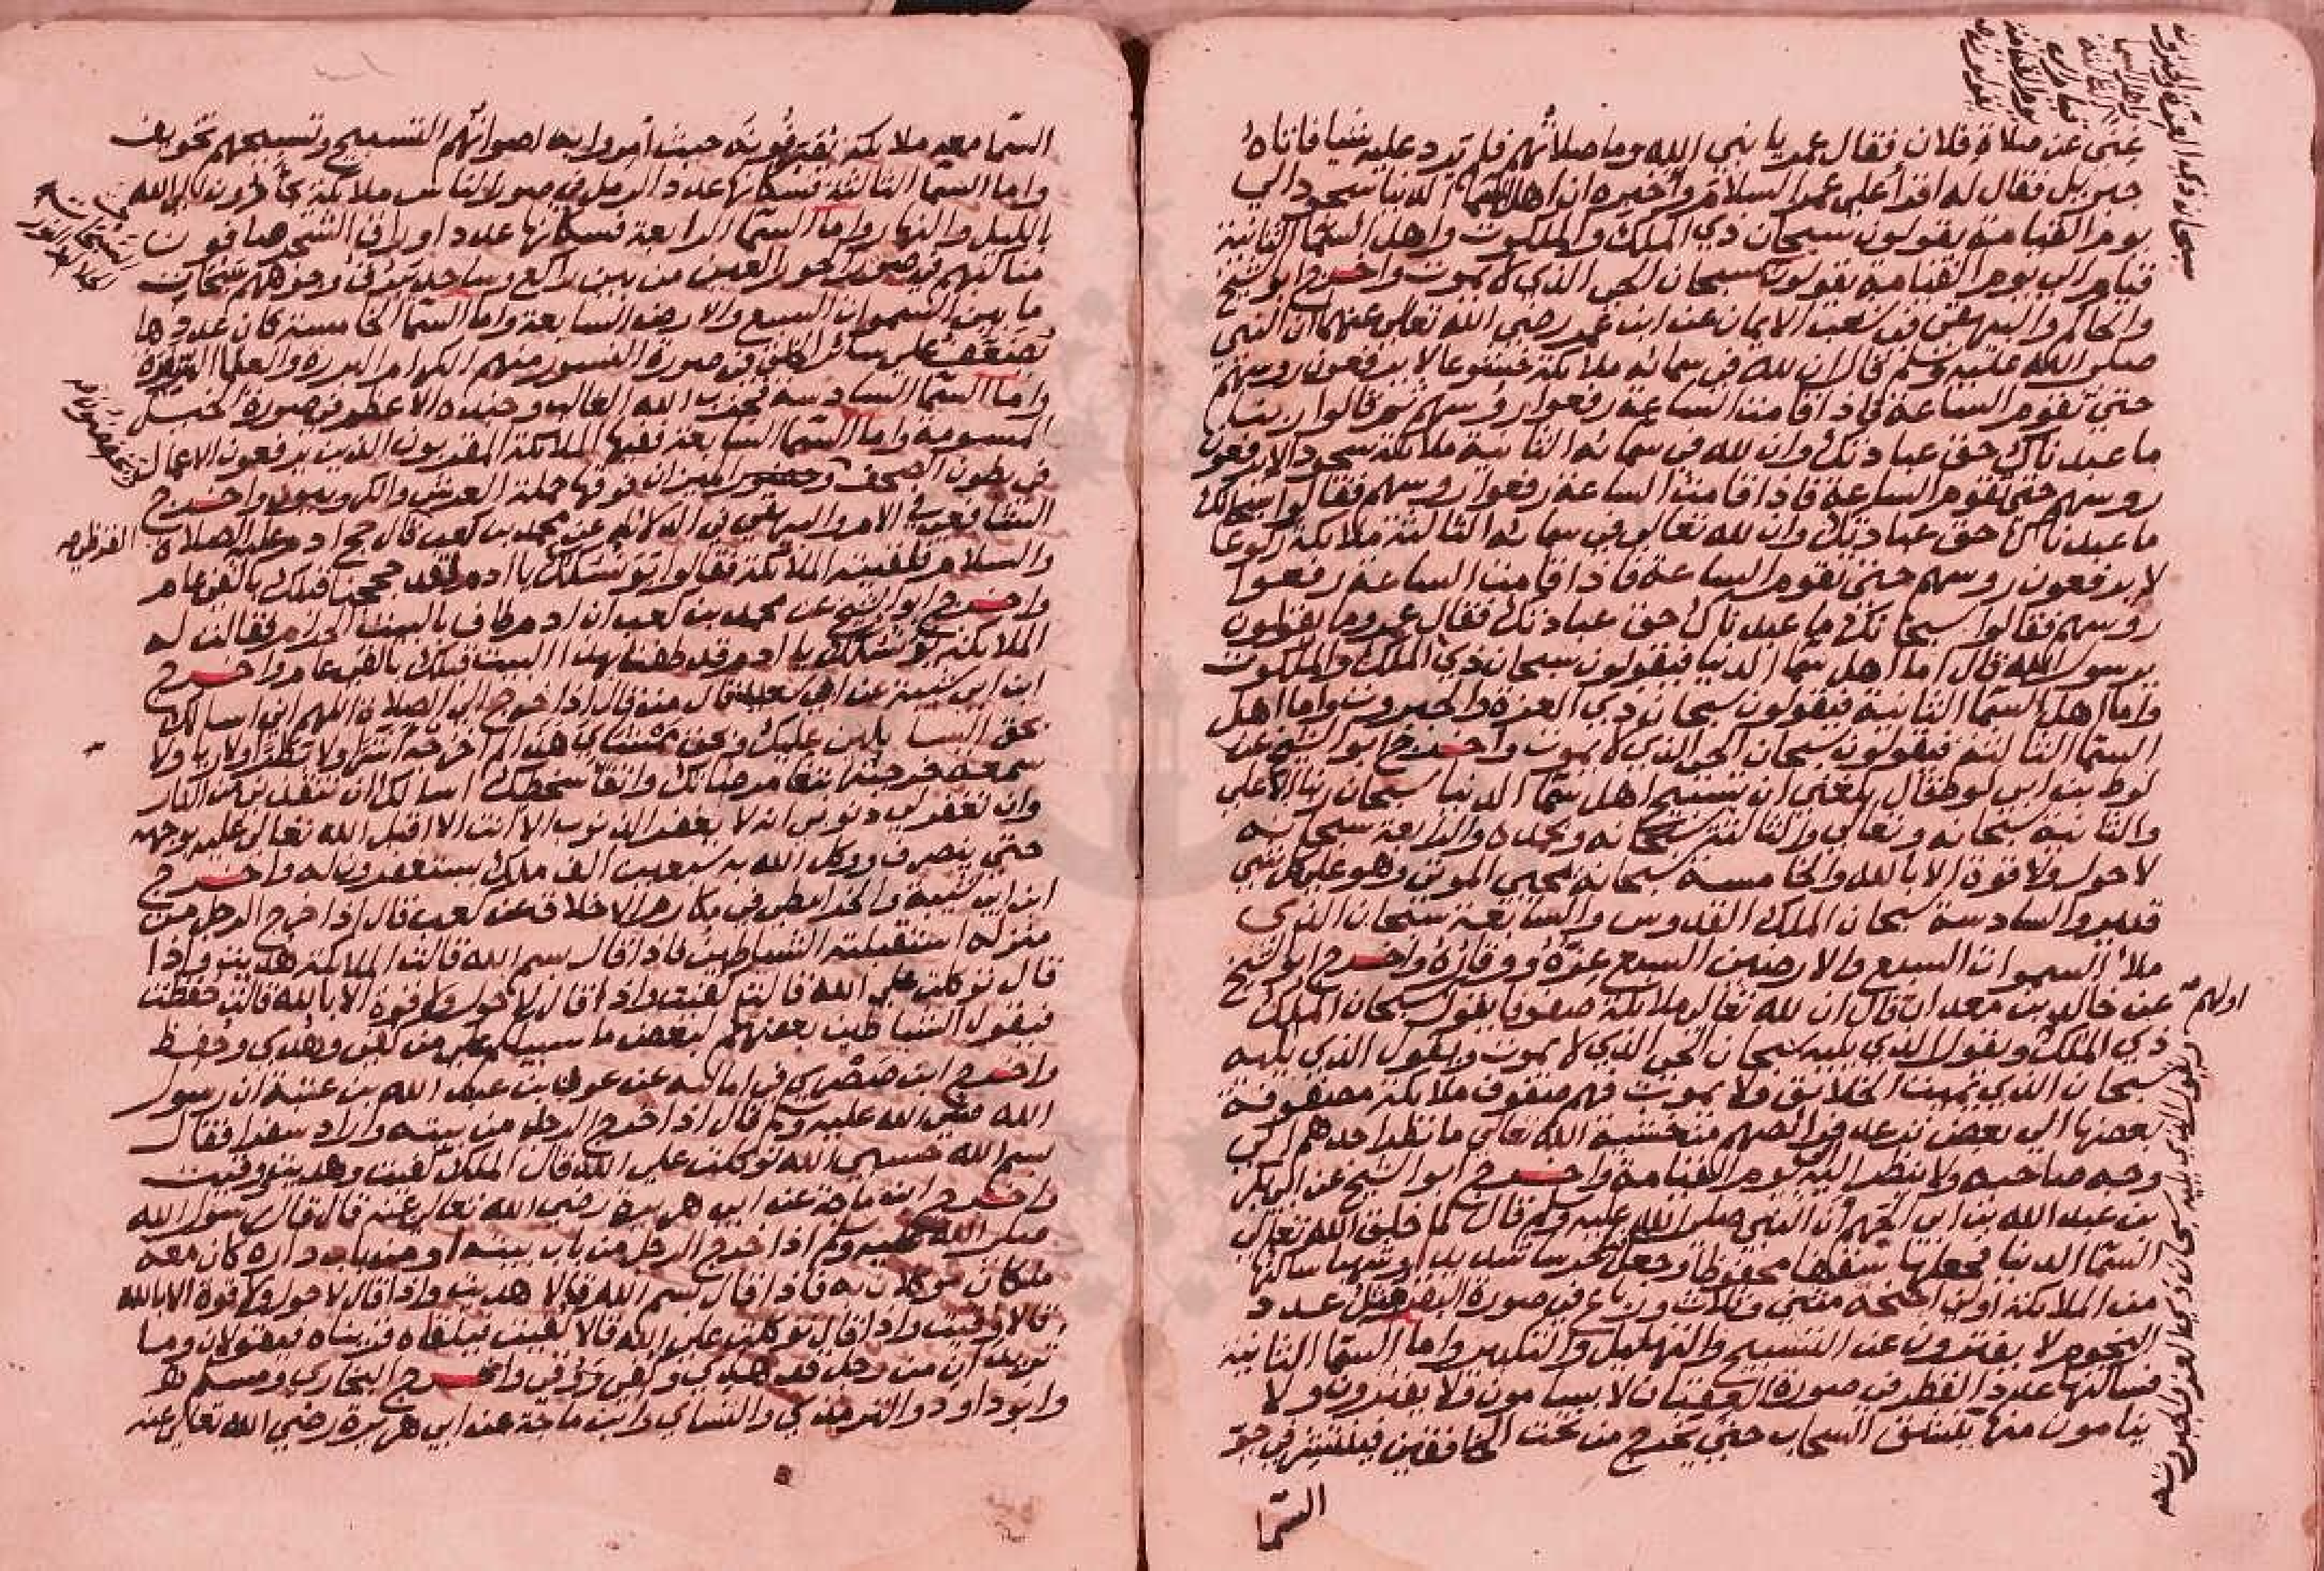 غني عن صلاة فلان فقال عمر يا نبي الله وما صلاتهم فلم يرد عليه شيا فاتاه
جبريل فقال له اقرأ علي عمر السلام وأخبره ان اهل السما الدنيا سجود الي
يوم القيامة يقولون سبحان ذي الملك والملكوت واهل السما الثانية
قيام الي يوم القيامة يقولون سبحان الحي الذي لا يموت واخرج ابو الشيخ
والحاكم والبيهقي في شعب الايمان عن ابن عمر رضي الله تعالي عنهما ان النبي
صلي الله عليه وسلم قال ان لله في سمائه ملائكة خشوعا لا يرفعون روسهم
حتي تقوم الساعة فاذا قامت الساعة رفعوا روسهم ثم قالوا ربنا
ما عبدناك حق عبادتك وان لله في سمائه الثانية ملائكة سجود لا يرفعون
روسهم حتي تقوم الساعة فاذا قامت الساعة رفعوا روسهم فقالوا سبحانك
ما عبدناك حق عبادتك وان لله تعالي في سمائه الثالثة ملائكة ركوعا
لا يرفعون روسهم حتي تقوم الساعة فاذا قامت الساعة رفعوا
روسهم فقالوا سبحانك ما عبدناك حق عبادتك فقال عمر وما يقولون
يرسول الله قال اما اهل سما الدنيا فيقولون سبحان ذي الملك والملكوت
واما اهل السما الثانية فيقولون سبحان ذي العزة والجبروت واما اهل
السما الثالثة فيقولون سبحان الحي الذي لا يموت واخرج ابو الشيخ عن
لوط بن ابي لوط قال بلغني ان تسبيح اهل سما الدنيا سبحان ربنا الاعلي
والثانية سبحانه وتعالي والثالثة سبحانه وبحمده والرابعة سبحانه
لا حول ولا قوة الا بالله والخامسة سبحانه محيي الموتي وهو علي كل شي
قدير والسادسة سبحان الملك القدوس والسابعة سبحان الذي
ملأ السموات السبع والارضين السبع عزة ووقارة واخرج ابو الشيخ
عن خالد بن معدان قال ان لله تعالي ملائكة صفوفا يقول سبحان الملك
اولهم
ذي الملك ويقول الذي يليه سبحان الحي الذي لا يموت ويقول الذي يليه
سبحان الذي يميت الخلائق ولا يموت فهم صفوف ملائكة مصفوفة
بعضها الي بعض ترعد فرائصهم من خشية الله تعالي ما نظر احدهم الي
وجه صاحبه ولا ينظر اليه يوم القيامة واخرج ابو الشيخ عن ابي بكر
بن عبد الله بن ابي الجهم أن النبي صلي الله عليه وسلم قال لما خلق الله تعالي
السما الدنيا فجعلها سقفا محفوظا وجعل حرسا شديدا وشهبا ساكنها
من الملائكة اولي اجنحة مثني وثلاث ورباع في صورة البقر مثل عدد
النجوم لا يفترون عن التسبيح والتهليل والتكبير واما السما الثانية
فساكنها عدد القطر في صورة العقبان لا يسامون ولا يفترون ولا
ينامون منها ينشق السحاب حتي يخرج من تحت الخافقين فينتشر في جو
السما
السما معه ملائكة يصرفونه حيث أمروا به اصواتهم التسبيح وتسبيحهم تخويف
واما السما الثالثة فسكانها عدد الرمل في صور الناس ملائكة يجأرون الي الله
بالليل والنهار واما السما الرابعة فسكانها عدد اوراق الشجر صافون
مناكبهم في صورة الحور العين من بين راكع وساجد تبرق وجوههم سبحات
ما بين السموات السبع والارض السابعة واما السما الخامسة كان عددها
يضعف علي سائر الخلق في صورة النسور منهم الكرام البررة والعلما السفرة
واما السما السادسة فحزب الله الغالب وجنده الاعظم في صورة الخيل
المسومة واما السما السابعة ففيها الملائكة المقربون الذين يرفعون الاعمال
في بطون الصحف الميزان فوقها حملة العرش والكروبيون واخرج
الشافعي في الام والبيهقي في الدلائل عن محمد بن كعب قال حج ادم عليه الصلاة
القرظي
والسلام فلقيته الملائكة فقالوا بر نسكك يا ادم لقد حججنا قبلك بالفي عام
واخرج ابو الشيخ عن محمد بن كعب ان ادم طاف بالبيت الحرام فقالت له
الملائكة بر نسكك يا ادم قد طفنا بهذا البيت قبلك بالفي عام واخرج
ابن ابي شيبة عن ابي سعيد قال من قال اذا خرج الي الصلاة اللهم اني اسالك
بحق السايلين عليك وبحق ممشاي هذا لم اخرجه أشرا ولا بطرا ولا ريا ولا
سمعة خرجته ابتغا مرضاتك واتقا سخطك اسالك ان تنقذني من النار
وان تغفر لي ذنوبي انه لا يغفر الذنوب الا أنت الا اقبل الله تعالي عليه بوجهه
حتي ينصرف ووكل الله به سبعين الف ملك يستغفرون له واخرج
ابن ابي شيبة والخرايطي في مكارم الاخلاق عن كعب قال اذا خرج الرجل من
منزله استقبلته الشياطين فاذا قال بسم الله قالت الملائكة هديت واذا
قال توكلت علي الله قالت كفيت واذا قال لا حول ولا قوة الا بالله قالت حفظت
فيقول الشياطين بعضهم لبعض ما سبيلكم علي من كفي وهدي وحفظ
واخرج ابن صصري في اماليه عن عون بن عبد الله بن عتبة ان رسول
الله صلي الله عليه وسلم قال اذا خرج الرجل من بيته واراد سفرا فقال
بسم الله حسبي الله توكلت علي الله قال الملك كفيت وهديت ووقيت
واخرج ابن ماجة عن ابي هريرة رضي الله تعالي عنه قال قال رسول الله
صلي الله عليه وسلم اذا خرج الرجل من باب بيته او من باب داره كان معه
ملكان موكلان به فاذا قال بسم الله قالا هديت واذا قال لا حول ولا قوة الا بالله
قالا وقيت واذا قال توكلت علي الله قالا كفيت فيلقاه قريناه فيقولان وما
تريدان من رجل قد هدي وكفي ووقي واخرج البخاري ومسلم
وابو داود والترمذي والنسائي وابن ماجة عن ابي هريرة رضي الله تعالي عنه